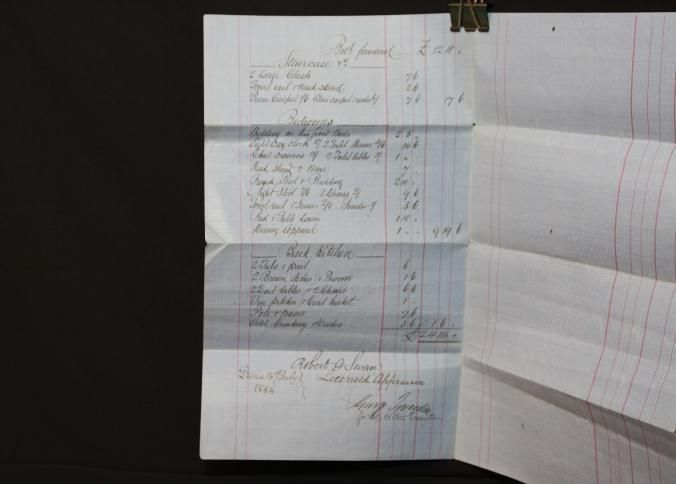 Brot forward £ 12 11 .
Staircase &c
2 large Chests 7 6
Towel rail & Wash stand 2 6
Carpet 7/6 Stair carpet & rods 7 6 17 6
Bedrooms
Bedding on two first Beds 2 5 .
Eight Day clock 2 Toilet Mirrors 10 6
Chest Drawers 2 Toilet tables 1 .
Wash stand & Ware 7 .
French Bed & Bedding 2 10 .
Night Stool 2 Chairs 9 6
Towel rail & Screen Fender 3 6
Bed & Table Linen 1 10 .
Wearing Apparel 1 . . 9 19 6
Back Kitchen
2 Tubs 1 pail 6
2 Brown dishes & Brooms 1 6
2 Deal tables & 2 Chairs 6 6
Tin pitcher & Coal basket 1 .
Pots & pans 7 6
Odd Crockery & Dishes 3 6 1 6 .
£24 14 .
Robert G Swan
Licensed Appraiser
July
1884